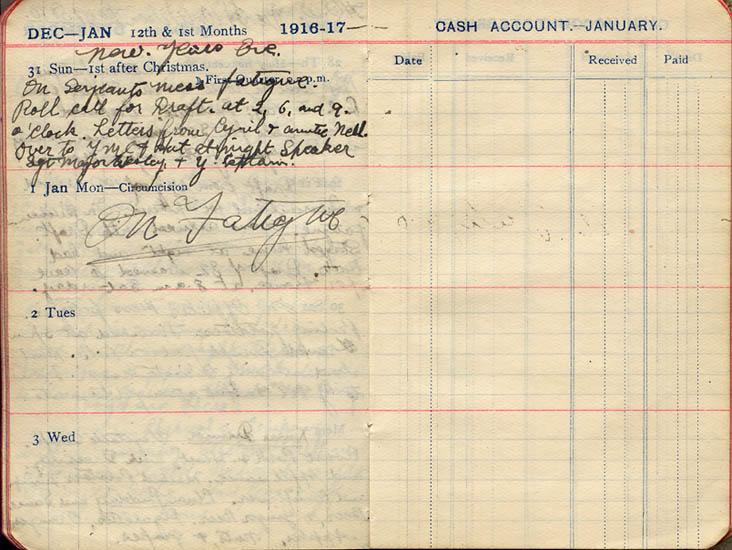 DEC—JAN 12th & 1st Months 1916-17—
New. Years Eve.
31 Sun—1st after Christmas.
First Quarter p.m.
On Sergeants mess fatigue.
Roll call for Draft. at 2, 6, and 9.
o'clock. Letters from Cyril & auntie Nell.
Over to YMCA hut at night Speaker
Sgt Major Wesley, + Y.
1 Jan Mon—Circumcision
On Fatigue
2 Tues
3 Wed
CASH ACCOUNT.—JANUARY.
Date Received Paid